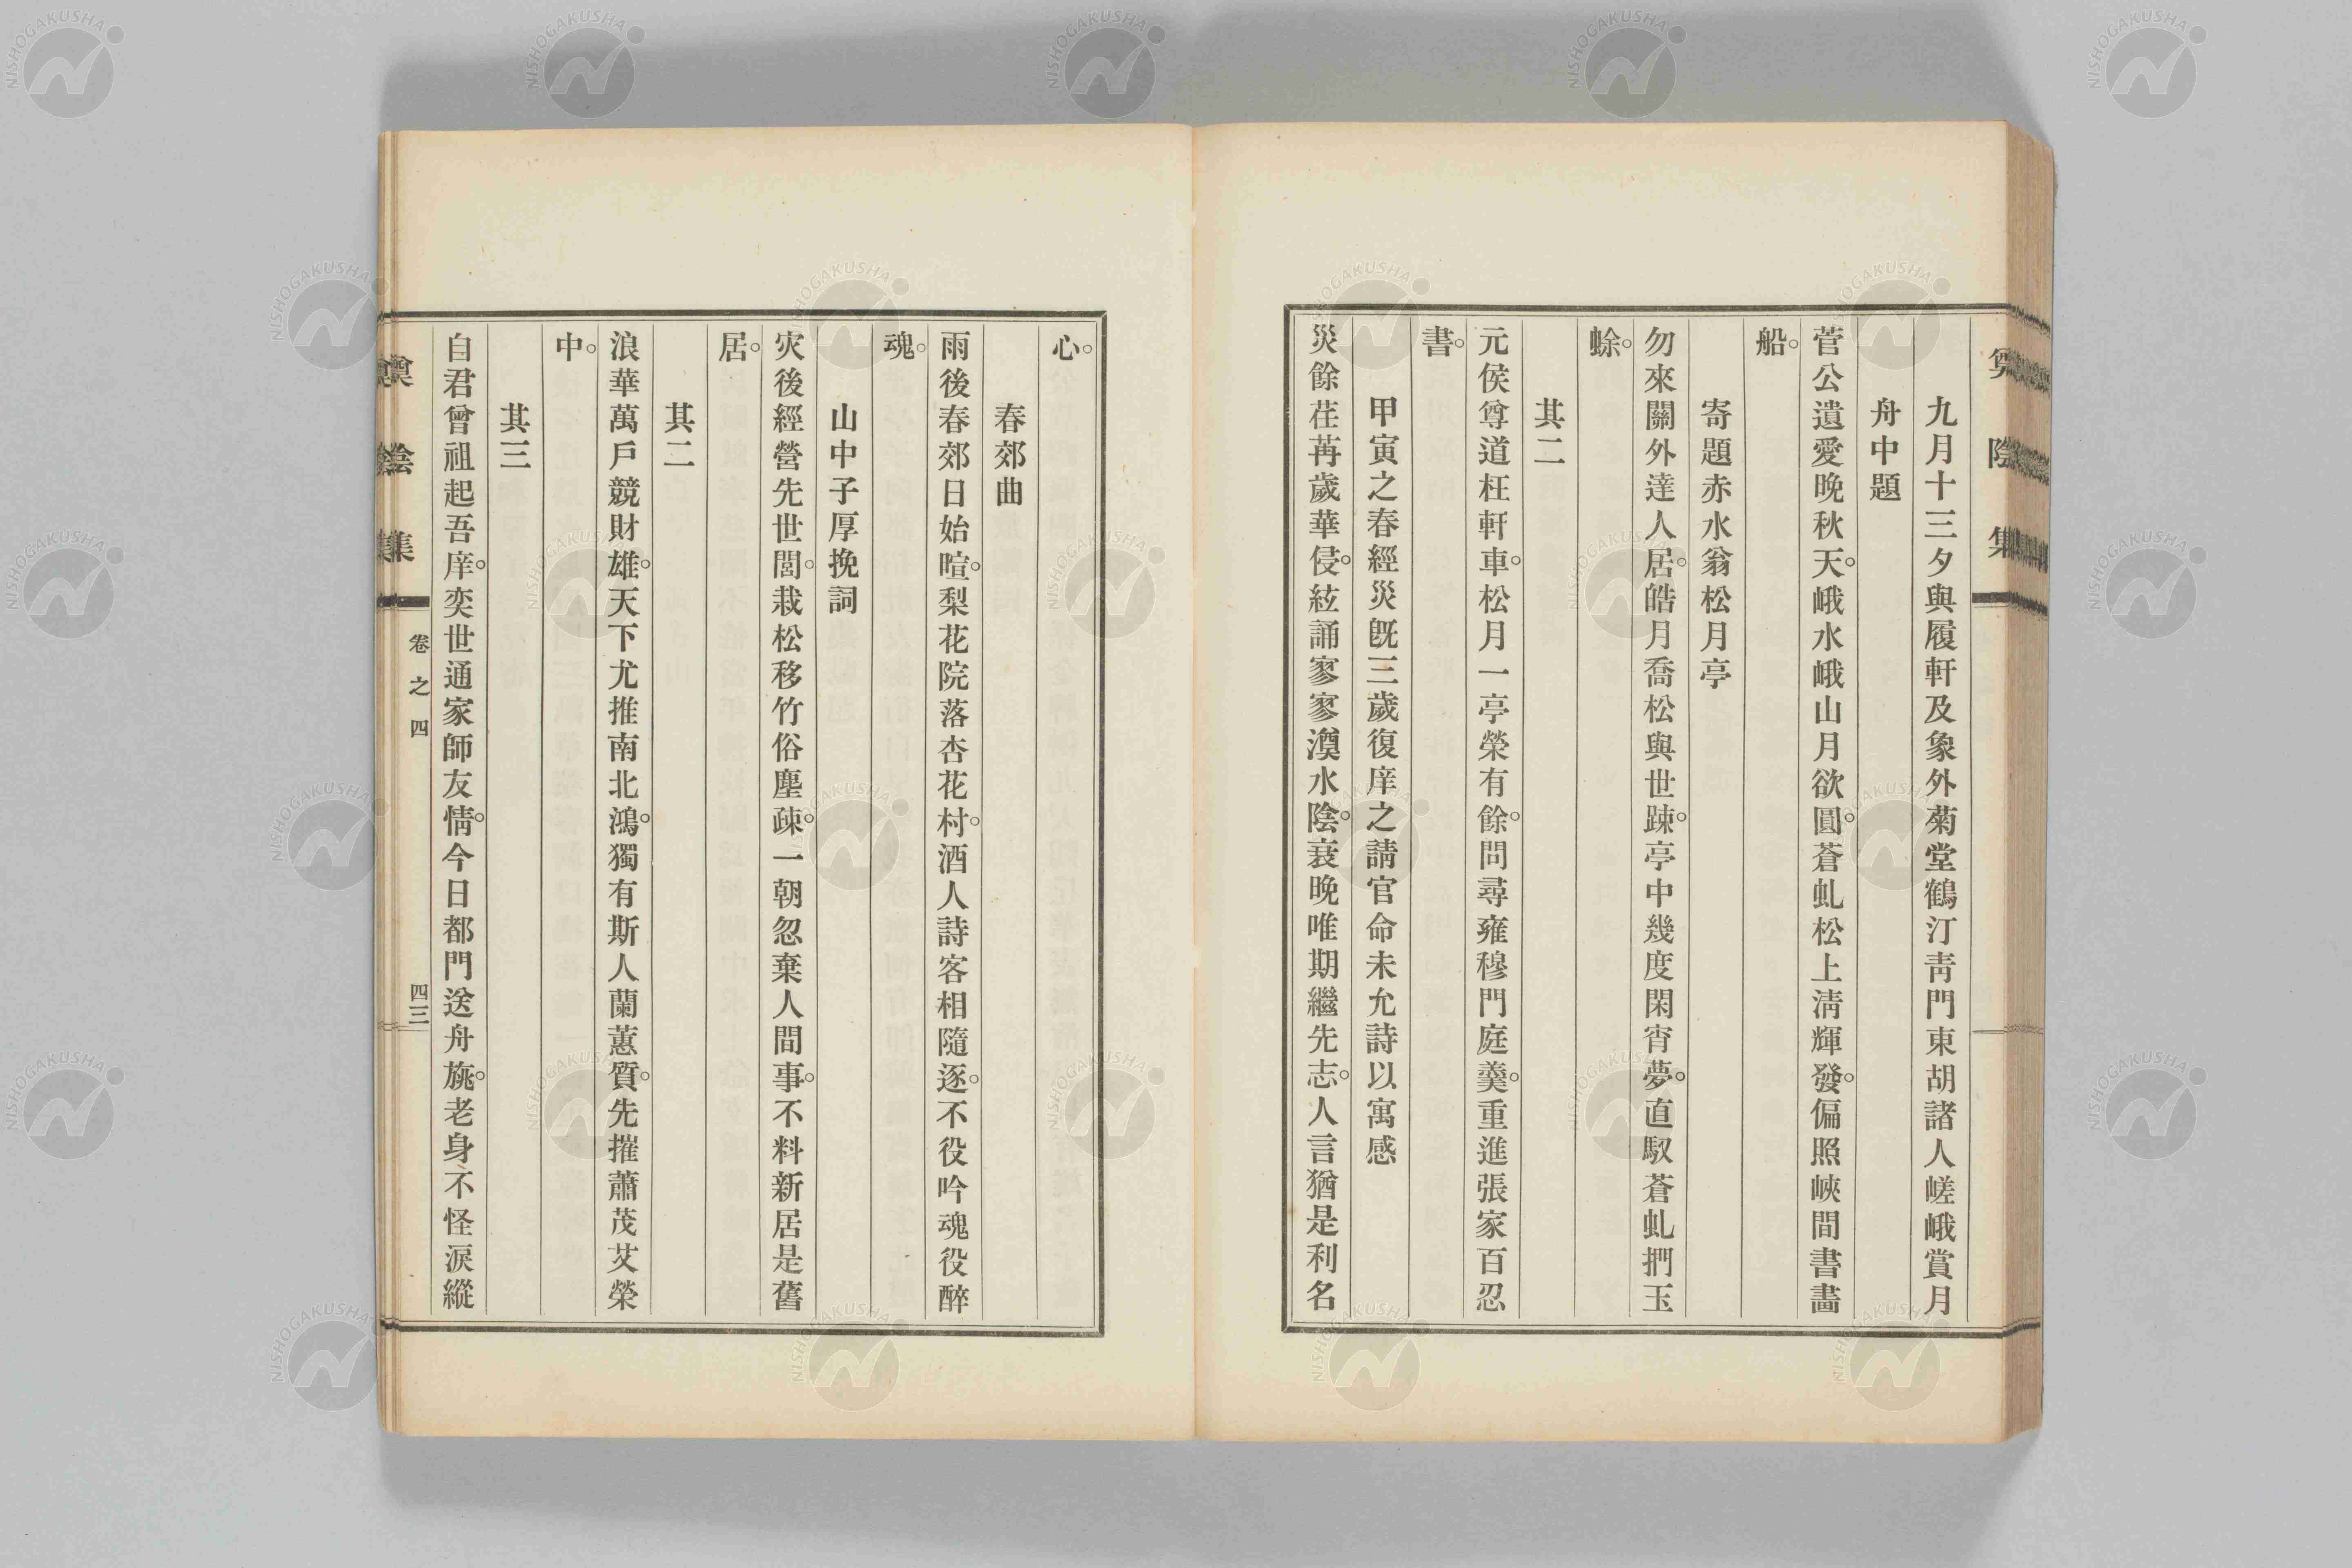 九月十三夕與履軒及象外菊堂鶴汀靑門東胡諸人嵯峨賞月
舟中題
菅公遺愛晩秋天。峨水峨山月欲圓。蒼虬松上淸輝發。偏照峽間書畵
船。
寄題赤水翁松月亭
勿來關外達人居。皓月喬松與世踈。亭中幾度閑宵夢。直馭蒼虬捫玉
蜍。
其二
元侯尊道枉軒車。松月一亭榮有餘。問尋雍穆門庭羹。重進張家百忍
書。
甲寅之春經災旣三歲復庠之請官命未允詩以寓感
災餘荏苒歲華侵。絃誦寥寥澳水陰。衰晩唯期繼先志。人言猶是利名
心。
春郊曲
雨後春郊日始暄。梨花院落杏花村。酒人詩客相隨逐。不役吟魂役醉
魂。
山中子厚挽詞
灾後經營先世閭。栽松移竹俗塵疎。一朝忽棄人間事。不料新居是舊
居。
其二
浪華萬戶競財雄。天下尤推南北鴻。獨有斯人蘭蕙質。先摧蕭茂艾榮
中。
其三
自君曾祖起吾庠。奕世通家師友情。今日都門送舟旐。老身不怪淚縱
奠陰集
卷之四
四三
NISHOGAKUSHA